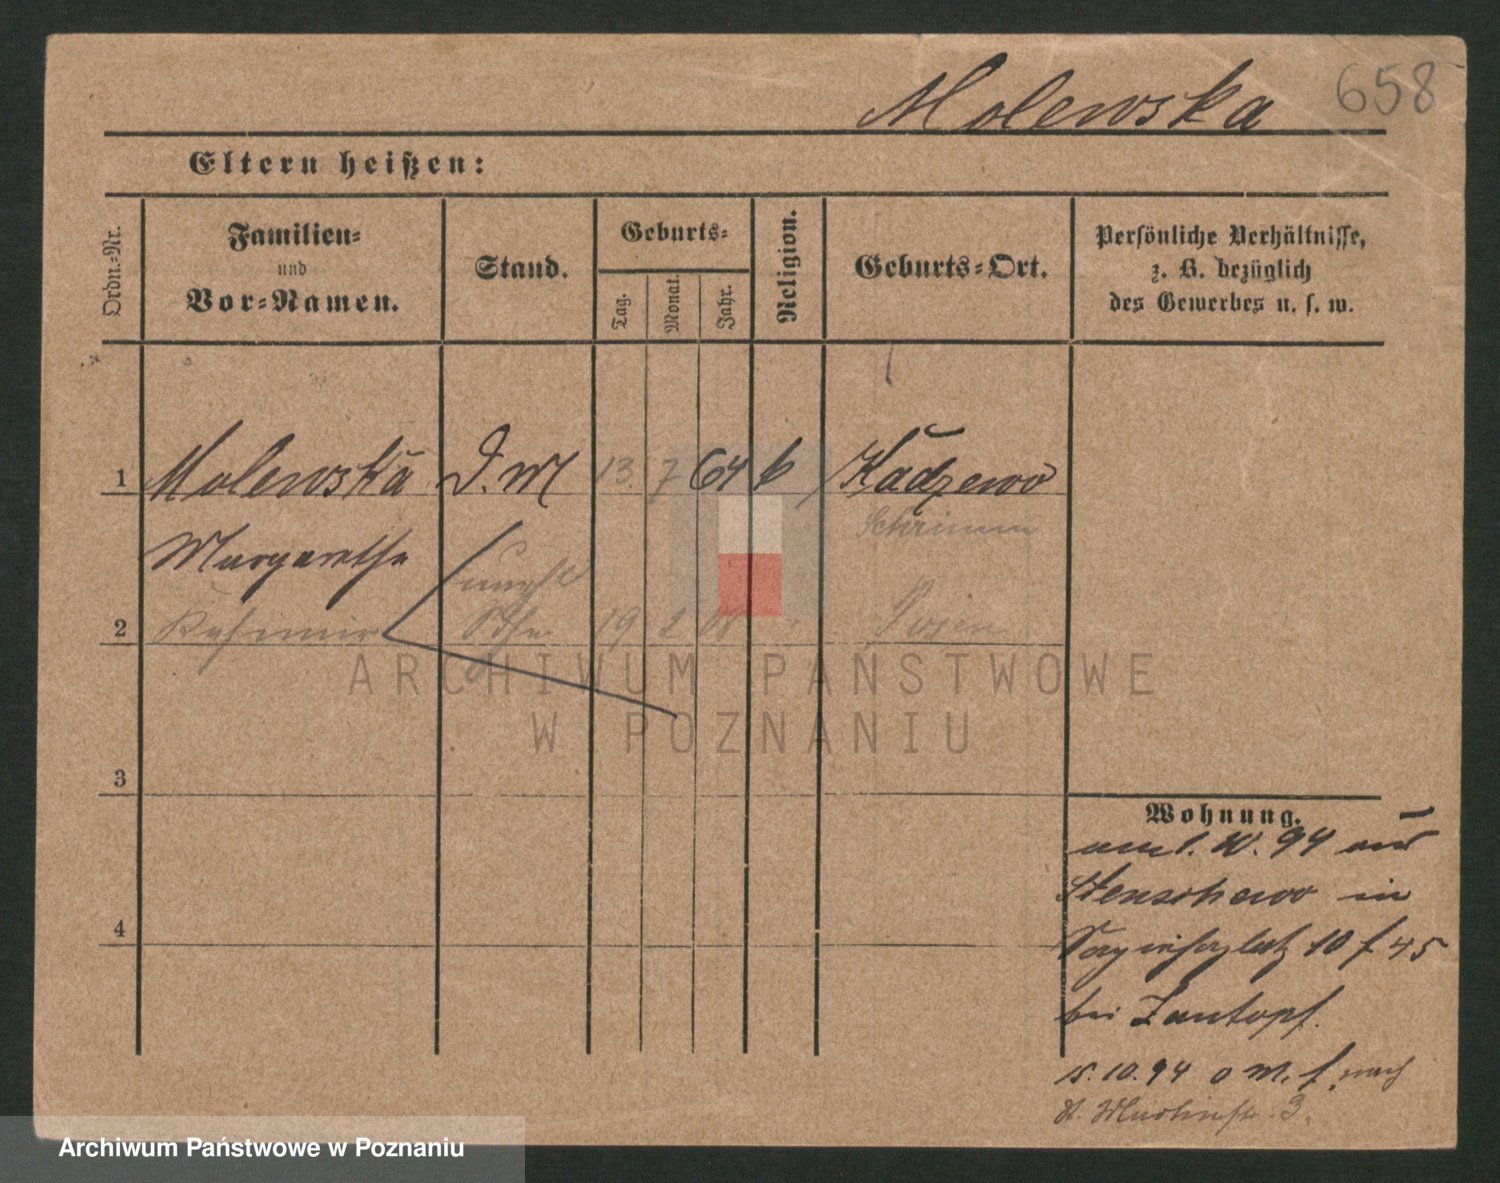 Molewska 658
Eltern heißen:
Ordn.-Nr.
Familien-
und
Vor-Namen.
Stand.
Geburts-
Tag.
Monat.
Jahr.
Religion.
Geburts-Ort.
Persönliche Verhältnisse,
z. B. bezüglich
des Gewerbes u. s. w.
1 Molewska D. M 13. 7 64 k Kadzewo
Schrimm
Margarethe
unehl
2 Kasimir Sohn 19 2 Posen
ARCHIWUM PAŃSTWOWE
W POZNANIU
3
Wohnung.
am 1. 10. 94 aus
Stenschewo in
10 f 45
4
bei Zantopf.
15. 10. 94 o M. f. nach
St. Martinstr. 3.
Archiwum Państwowe w Poznaniu